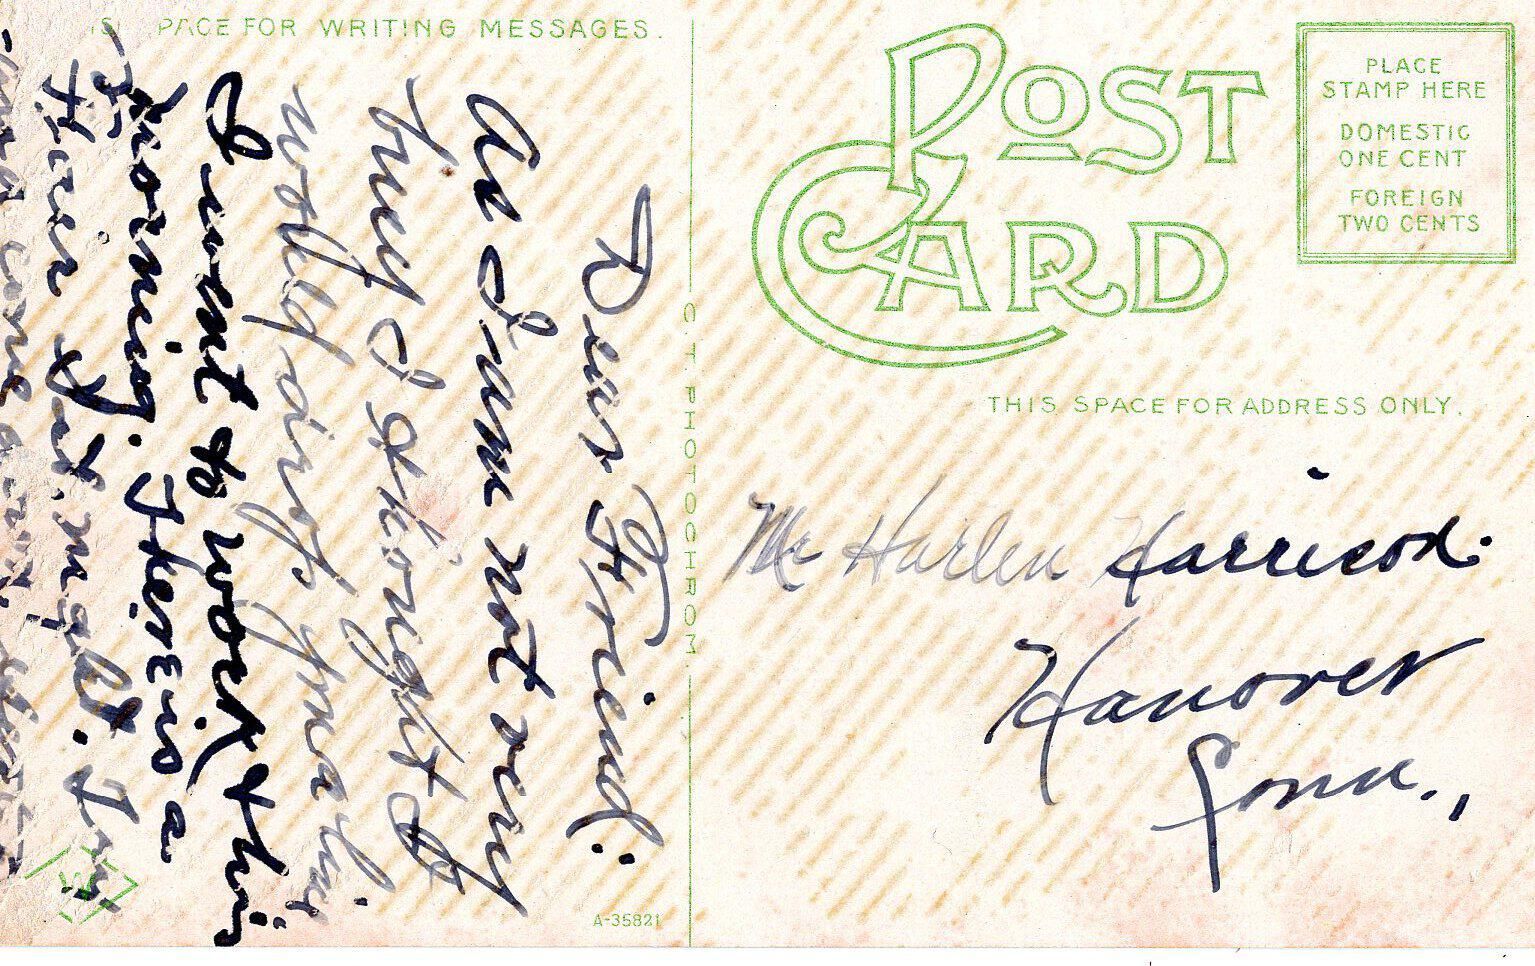 SPACE FOR WRITING MESSAGES.
POST
CARD
PLACE
STAMP HERE
DOMESTIC
ONE CENT
FOREIGN
TWO CENTS
C.T. PHOTOCHROM.
THIS SPACE FOR ADDRESS ONLY.
Mr Harlen Harrison.
Hanover
Conn.,
Dear Friend:
As I am not very
busy I thought I
would drop you a line
I went to work this
morning. There is a
Sat. night. I'm
A-35821